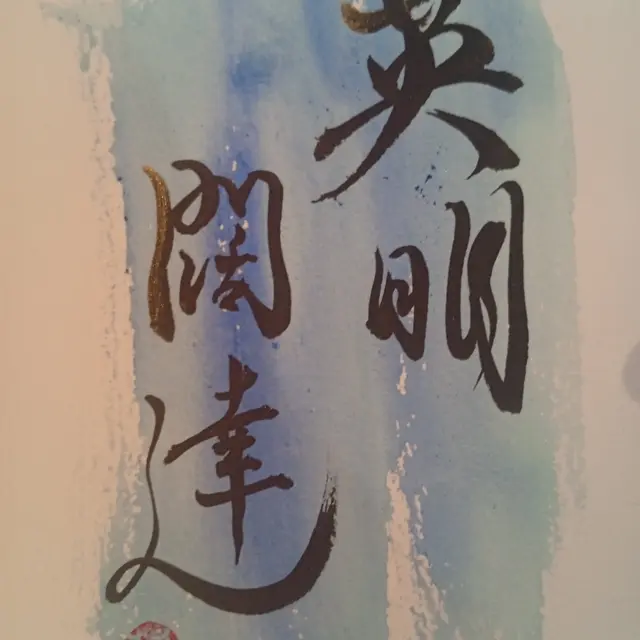 英明
闊達